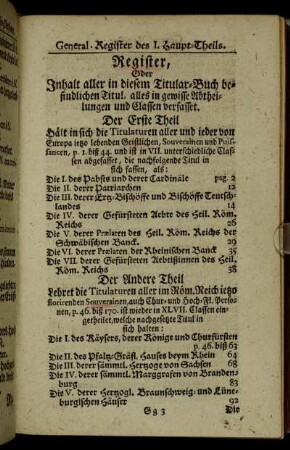 General-Register des I. Haupt-Theils.
Register,
Oder
Inhalt aller in diesem Titular-Buch be-
findlichen Titul. alles in gewisse Abthei-
lungen und Classen verfasset.
Der Erste Theil
Hält in sich die Titulaturen aller und ieder von
Europa itzo lebenden Geistlichen, Souverainen und Puis-
sancen, p. 1. biß 44. und ist in VII. unterschiedliche Clas-
sen abgefasset, die nachfolgende Titul in
sich fassen, als:
Die I. des Pabsts und derer Cardinäle pag. 2
Die II. derer Patriarchen 12
Die III. derer Ertz-Bischöffe und Bischöffe Teutsch-
landes 14
Die IV. derer Gefürsteten Aebte des Heil. Röm.
Reichs 26
Die V. derer Prælaten des Heil. Röm. Reichs der
Schwäbischen Banck. 29
Die VI. derer Prælaten der Rheinischen Banck 35
Die VII. derer Gefürsteten Aebtißinnen des Heil.
Röm. Reichs 38
Der Andere Theil
Lehret die Titulaturen aller im Röm. Reich itzo
florirenden Souverainen, auch Chur- und Hoch-Fl. Perso-
nen, p. 46. biß 170. ist wieder in XLVII. Classen ein-
getheilet, welche nachgesetzte Titul in
sich halten:
Die I. des Käysers, derer Könige und Churfürsten
p. 46. biß 63
Die II. des Pfaltz-Gräfl. Hauses beym Rhein 64
Die III. derer sämmtl. Hertzoge von Sachsen 68
Die IV. derer sämmtl. Marggrafen von Branden-
burg 83
Die V. derer Hertzogl. Braunschweig- und Lüne-
burgischen Häuser 92
Gg 3 Die